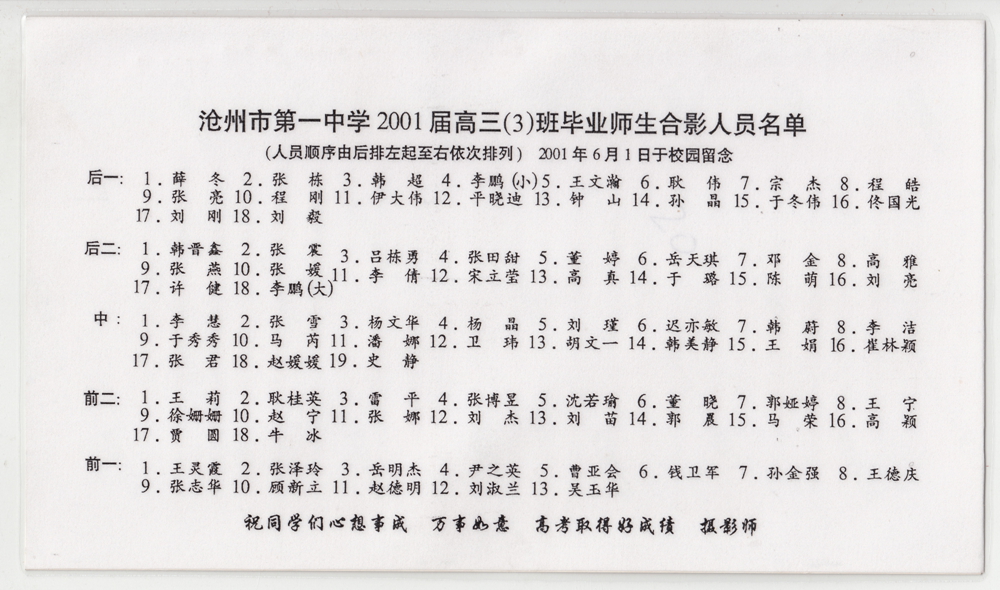 沧州市第一中学 2001 届高三(3)班毕业师生合影人员名单
(人员顺序由后排左起至右依次排列) 2001 年 6 月 1 日于校园留念
后一: 1. 薛 冬 2. 张 栋 3. 韩 超 4. 李鹏(小) 5. 王文瀚 6. 耿 伟 7. 宗 杰 8. 程 皓
9. 张 亮 10. 程 刚 11. 伊大伟 12. 平晓迪 13. 钟 山 14. 孙 晶 15. 于冬伟 16. 佟国光
17. 刘 刚 18. 刘 毅
后二: 1. 韩晋鑫 2. 张 裳 3. 吕栋勇 4. 张田甜 5. 董 婷 6. 岳天琪 7. 邓 金 8. 高 雅
9. 张 燕 10. 张 媛 11. 李 倩 12. 宋立莹 13. 高 真 14. 于 璐 15. 陈 萌 16. 刘 亮
17. 许 健 18. 李鹏(大)
中: 1. 李 慧 2. 张 雪 3. 杨文华 4. 杨 晶 5. 刘 瑾 6. 迟亦敏 7. 韩 蔚 8. 李 洁
9. 于秀秀 10. 马 芮 11. 潘 娜 12. 卫 玮 13. 胡文一 14. 韩美静 15. 王 娟 16. 崔林颖
17. 张 君 18. 赵媛媛 19. 史 静
前二: 1. 王 莉 2. 耿桂英 3. 雷 平 4. 张博昱 5. 沈若瑜 6. 董 晓 7. 郭娅婷 8. 王 宁
9. 徐姗姗 10. 赵 宁 11. 张 娜 12. 刘 杰 13. 刘 苗 14. 郭 晨 15. 马 荣 16. 高 颖
17. 贾 圆 18. 牛 冰
前一: 1. 王灵霞 2. 张泽玲 3. 岳明杰 4. 尹之英 5. 曹亚会 6. 钱卫军 7. 孙金强 8. 王德庆
9. 张志华 10. 顾新立 11. 赵德明 12. 刘淑兰 13. 吴玉华
祝同学们心想事成 万事如意 高考取得好成绩 摄影师